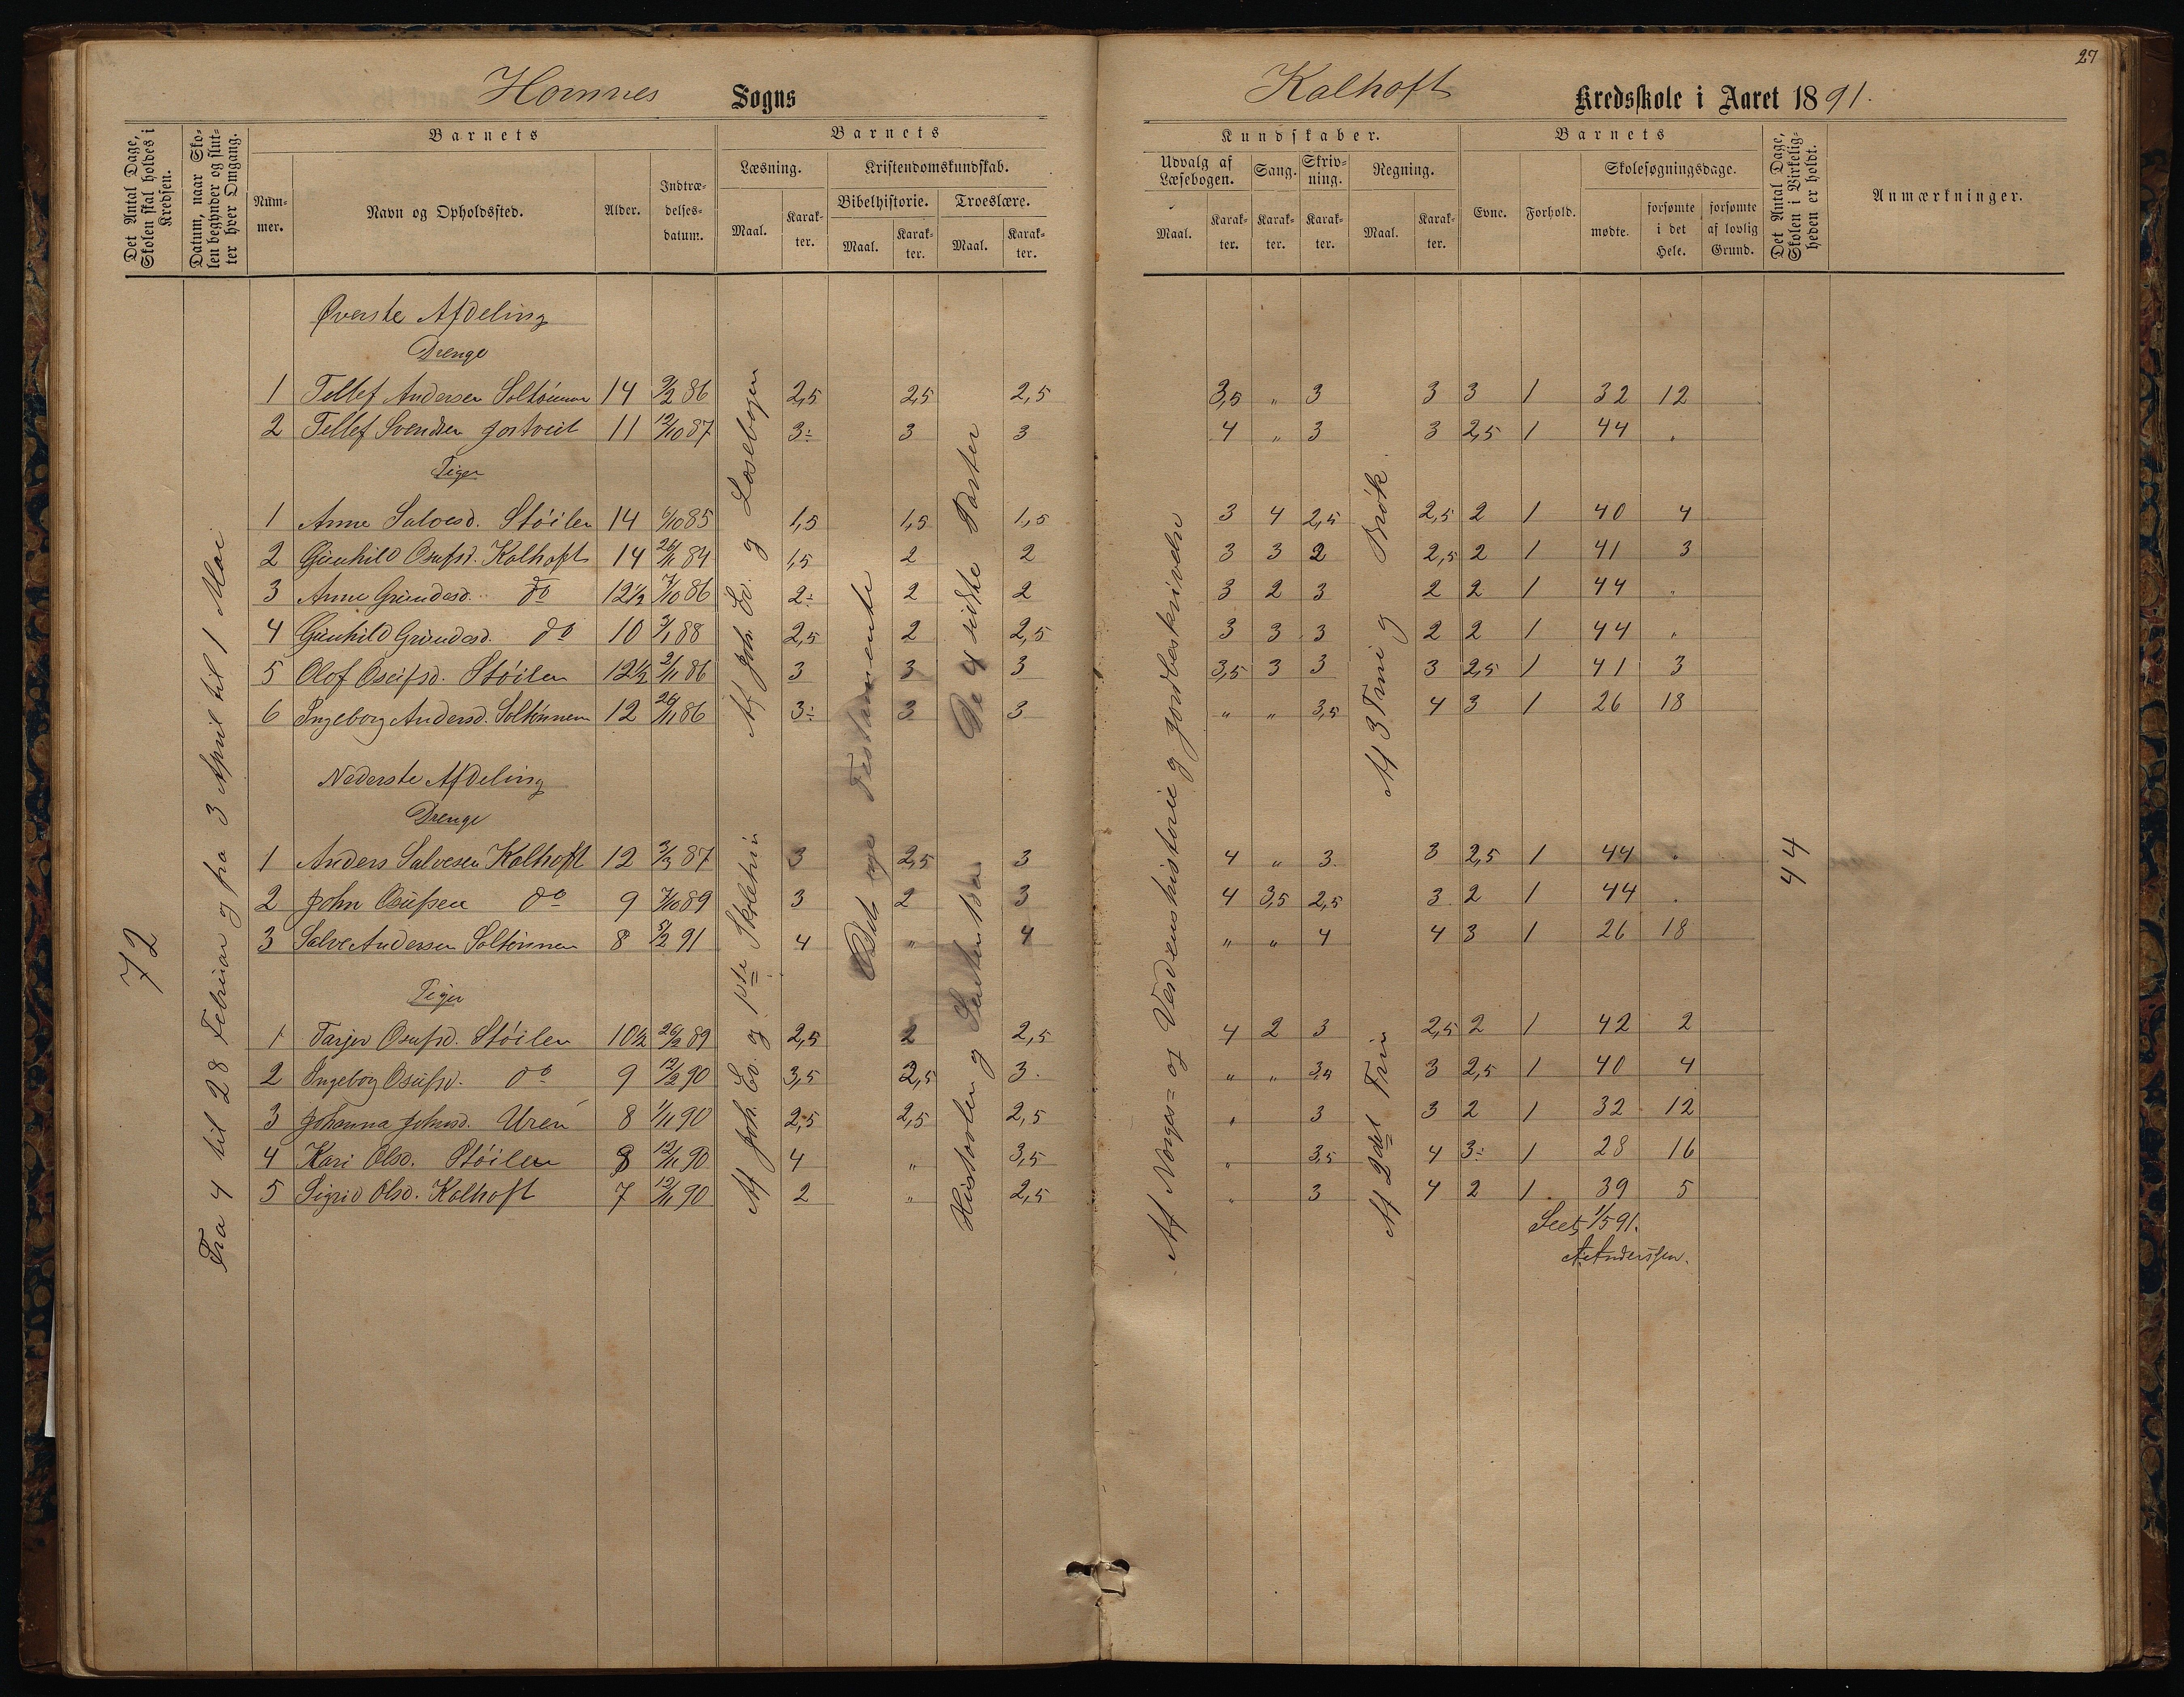 27
Homnes Sogns
Kalhoft Kredsskole i Aaret 1891.
Det Antal Dage, Skolen skal holdes i Kredsen.
Datum, naar Skolen begynder og slutter hver Omgang.
Barnets
Nummer.
Navn og Opholdssted.
Alder.
Indtrædelsesdatum.
Barnets
Læsning.
Maal.
Karakter.
Kristendomskundskab.
Bibelhistorie.
Maal.
Karakter.
Troeslære.
Maal.
Karakter.
Kundskaber.
Udvalg af Læsebogen.
Maal.
Karakter.
Sang.
Karakter.
Skrivning.
Karakter.
Regning.
Maal.
Karakter.
Barnets
Evne.
Forhold.
Skolesøgningsdage.
mødte.
forsømte i det Hele.
forsømte af lovlig Grund.
Det Antal Dage, Skolen i Virkeligheden er holdt.
Anmærkninger.
72
Fra 4 til 28 Februar og fra 3 April til 1 Mai
Øverste Afdeling
Drenge
1 Tellef Andersen 14 9/2 86 2,5 2,5 2,5 3,5 " 3 3 3 1 32 12
2 Tellef Svendsen 11 12/10 87 3÷ 3 3 4 " 3 3 2,5 1 44 "
Piger
1 Anne Salvesd. Støilen 14 6/10 85 1,5 1,5 1,5 3 4 2,5 2,5 2 1 40 4
2 Gunhild Osufsd. Kalhoft 14 26/11 84 1,5 2 2 3 3 2 2,5 2 1 41 3
3 Anne Gundesd. do 12½ 7/10 86 2÷ 2 2 3 2 3 2 2 1 44 "
4 Gunhild Gundesd. do 10 3/1 88 2,5 2 2,5 3 3 3 2 2 1 44 "
5 Olof Oseifsd. Støilen 12½ 2/11 86 3 3 3 3,5 3 3 3 2,5 1 41 3
6 Ingeborg Andersd. 12 26/11 86 3÷ 3 3 " " 3,5 4 3 1 26 18
Nederste Afdeling
Drenge
1 Anders Salvesen Kalhoft 12 3/3 87 3 2,5 3 4 " 3 3 2,5 1 44 "
2 John Osufsen do 9 7/10 89 3 2 3 4 3,5 2,5 3 2 1 44 "
3 Salve Andersen 8 5/2 91 4 " 4 " " 4 4 3 1 26 18
Piger
1 Tarjer Osufsd. Støilen 10½ 26/2 89 2,5 2 2,5 4 2 3 2,5 2 1 42 2
2 Ingeborg Osufsd. do 9 12/2 90 3,5 2,5 3 " " 3,5 3 2,5 1 40 4
3 Johanna Johnsd. Uren 8 1/11 90 2,5 2,5 2,5 " 3 3 2 1 32 12
4 Kari Olsd. Støilen 8 12/11 90 4 " 3,5 " 3,5 4 3÷ 1 28 16
5 Sigrid Olsd. Kalhoft 7 12/11 90 2 " 2,5 " 3 4 2 1 39 5
Af Joh. Ev. og Læsebogen
Af Joh. Ev. og 1ste Skoletrin
Det nye Testamente
De 4 sidste Parter
Af Norges= og Verdenshistorie og Jordbeskrivelse
Af 3 Trin og Brøk.
Af 2det Trin
44
Seet, 1/5 91.
A. Anderssen.